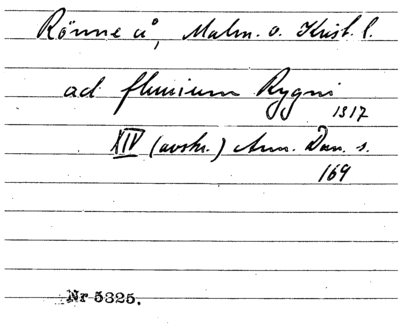 Rönne å, Malm. o. Krist. l.
ad fluuium Rygni
1317
XIV (avskr.) Ann. Dan. s.
169
Nr 5325.